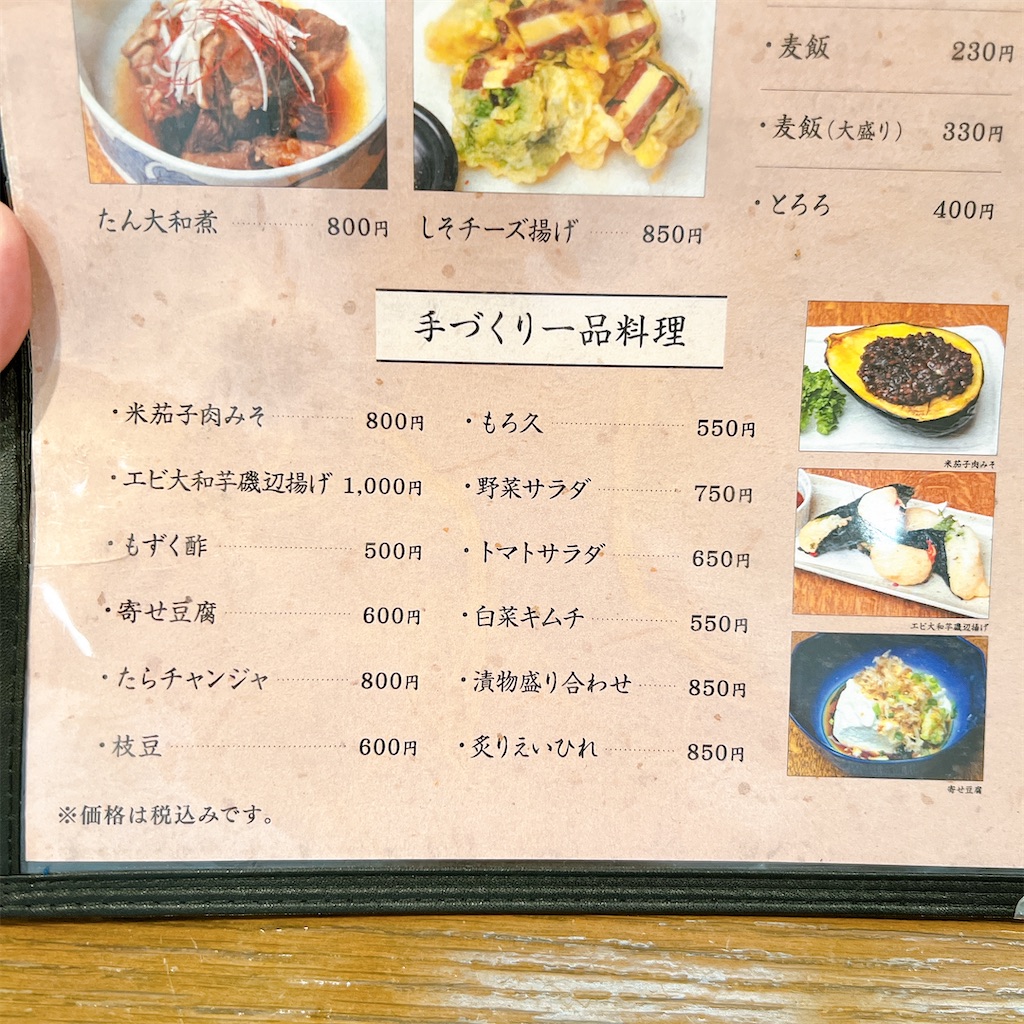 ・麦飯 230円
・麦飯(大盛り) 330円
・とろろ 400円
たん大和煮 800円
しそチーズ揚げ 850円
手づくり一品料理
・米茄子肉みそ 800円
・エビ大和芋磯辺揚げ 1,000円
・もずく酢 500円
・寄せ豆腐 600円
・たらチャンジャ 800円
・枝豆 600円
・もろ久 550円
・野菜サラダ 750円
・トマトサラダ 650円
・白菜キムチ 550円
・漬物盛り合わせ 850円
・炙りえいひれ 850円
米茄子肉みそ
エビ大和芋磯辺揚げ
寄せ豆腐
※価格は税込みです。